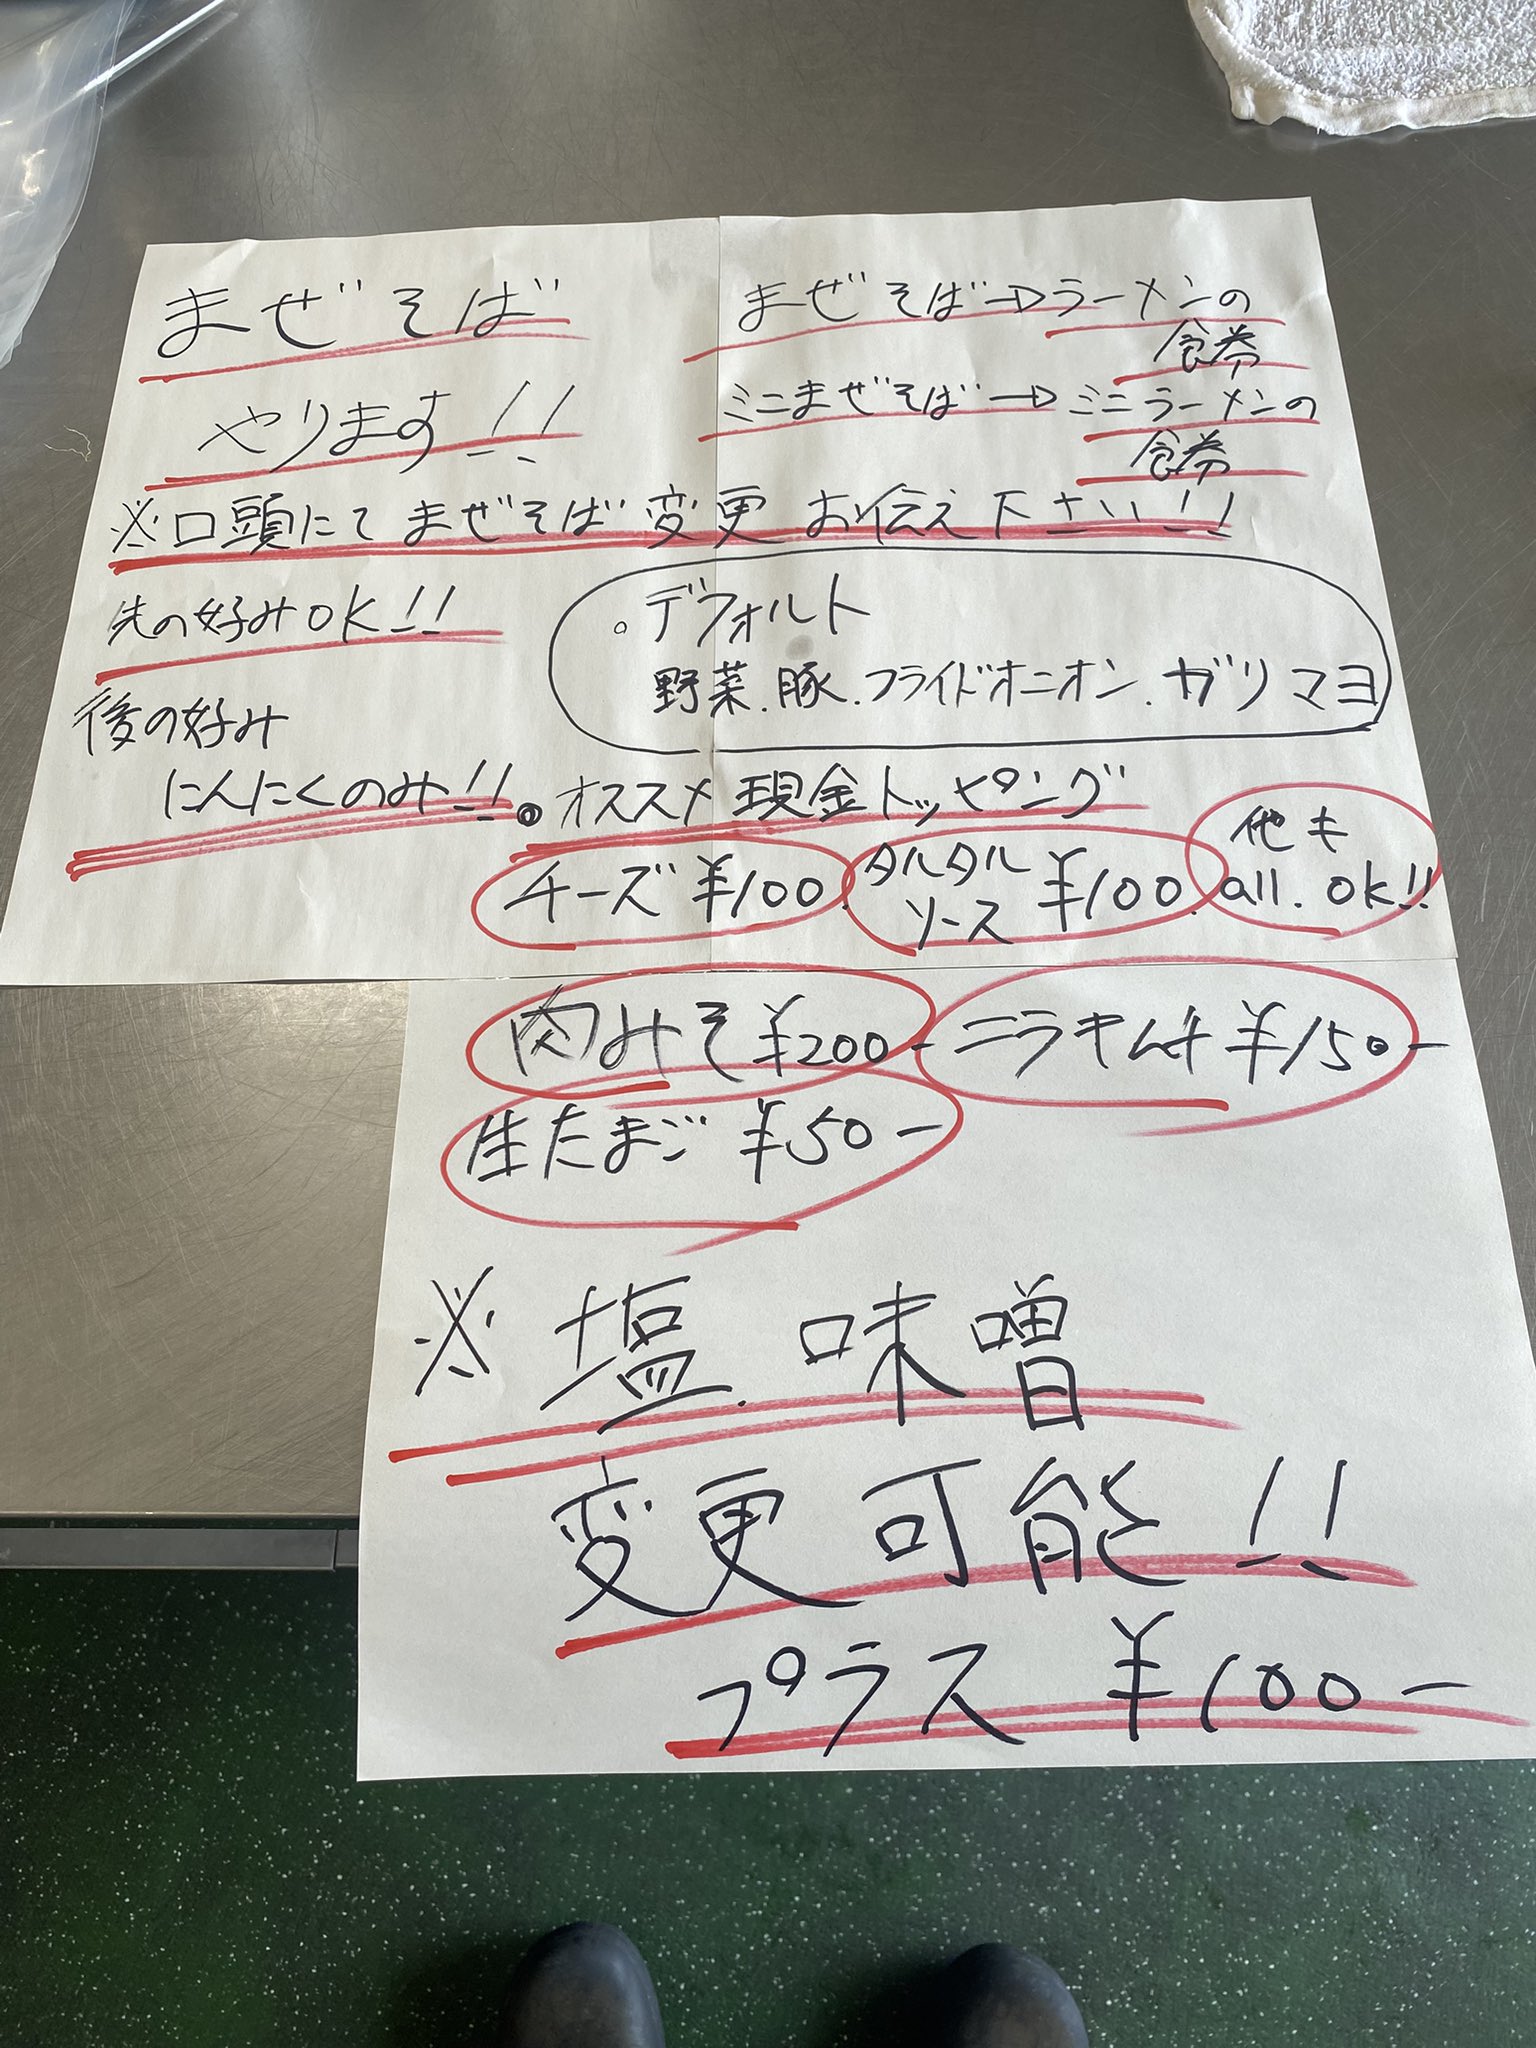 まぜそば
やります!!
まぜそば→ラーメンの
食券
ミニまぜそば→ミニラーメンの
食券
※口頭にてまぜそば変更お伝え下さい!!
先の好みOK!!
後の好み
にんにくのみ!!
。デフォルト
野菜.豚.フライドオニオン.ガリマヨ
。オススメ現金トッピング
チーズ¥100.
タルタル
ソース ¥100.
他も
all. OK!!
肉みそ¥200-
ニラキムチ¥150-
生たまご ¥50-
※ 塩.味噌
変更可能!!
プラス ¥100-